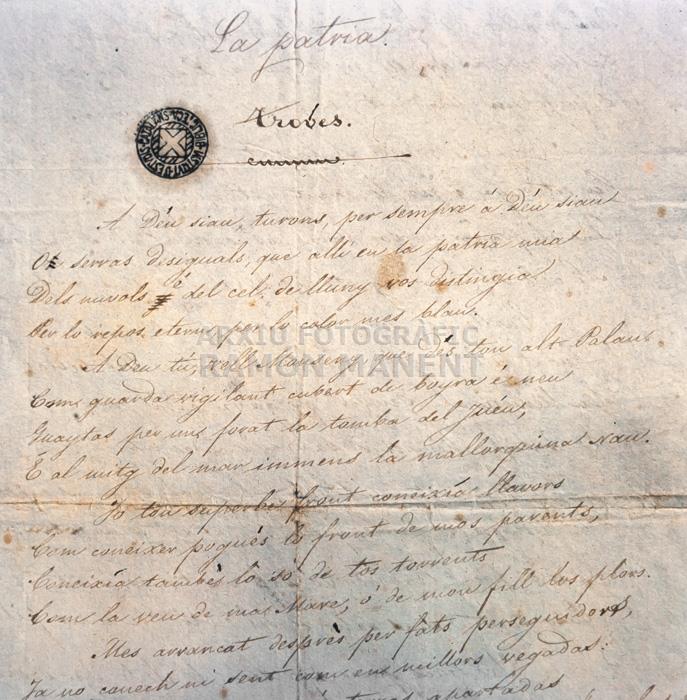 La patria.
Trobes.
A Déu siau, turons, per sempre á Déu siau
Os serras desiguals, que allí en la patria mia
Dels nuvols é del cel de lluny vos distingia
Per lo repos etern, per lo calor mes blau.
A Deu tú, vell Monseny, que dés ton alt Palau
Com guarda vigilant cubert de boyra é neu
Guaytas per un forat la tomba del Juéu,
E al mitg del mar immens la mallorquina nau.
Jo ton superbe front coneixia llavors
Com coneixer pogués lo front de mos parents,
Coneixia també lo só de tos torrents
Com la veu de ma Mare, ó de mon fill los plors.
Mes arrancat després per fats perseguidors,
Ja no conech ni sent com en millors vegadas:
apartadas
ARXIU FOTOGRÀFIC
RAMON MANENT